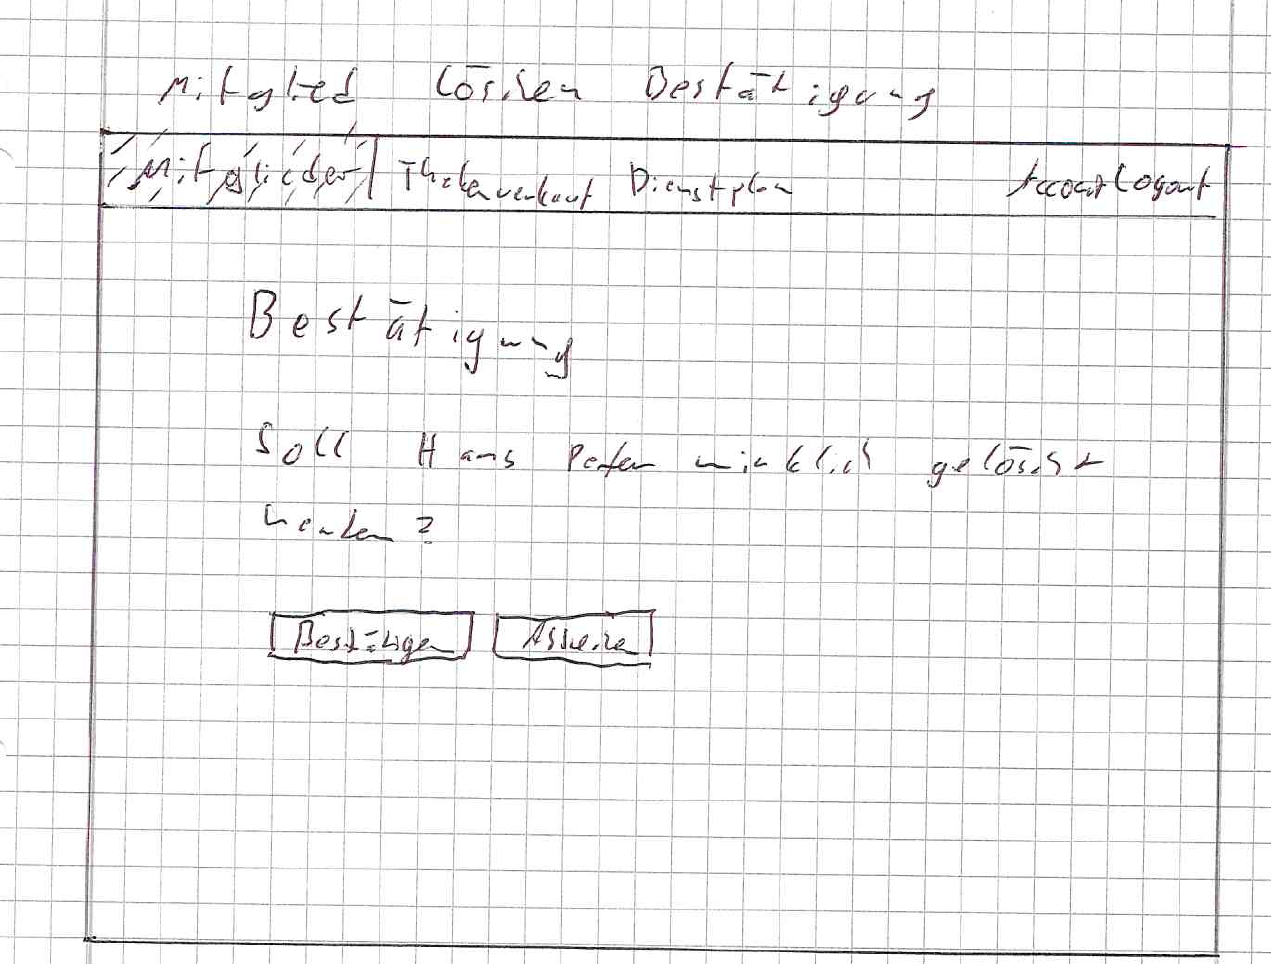 Mitglied löschen Bestätigung
Mitglieder Thekenverkauf Dienstplan Account Logout
Bestätigung
Soll Hans Peter wirklich gelöscht
werden?
Bestätigen